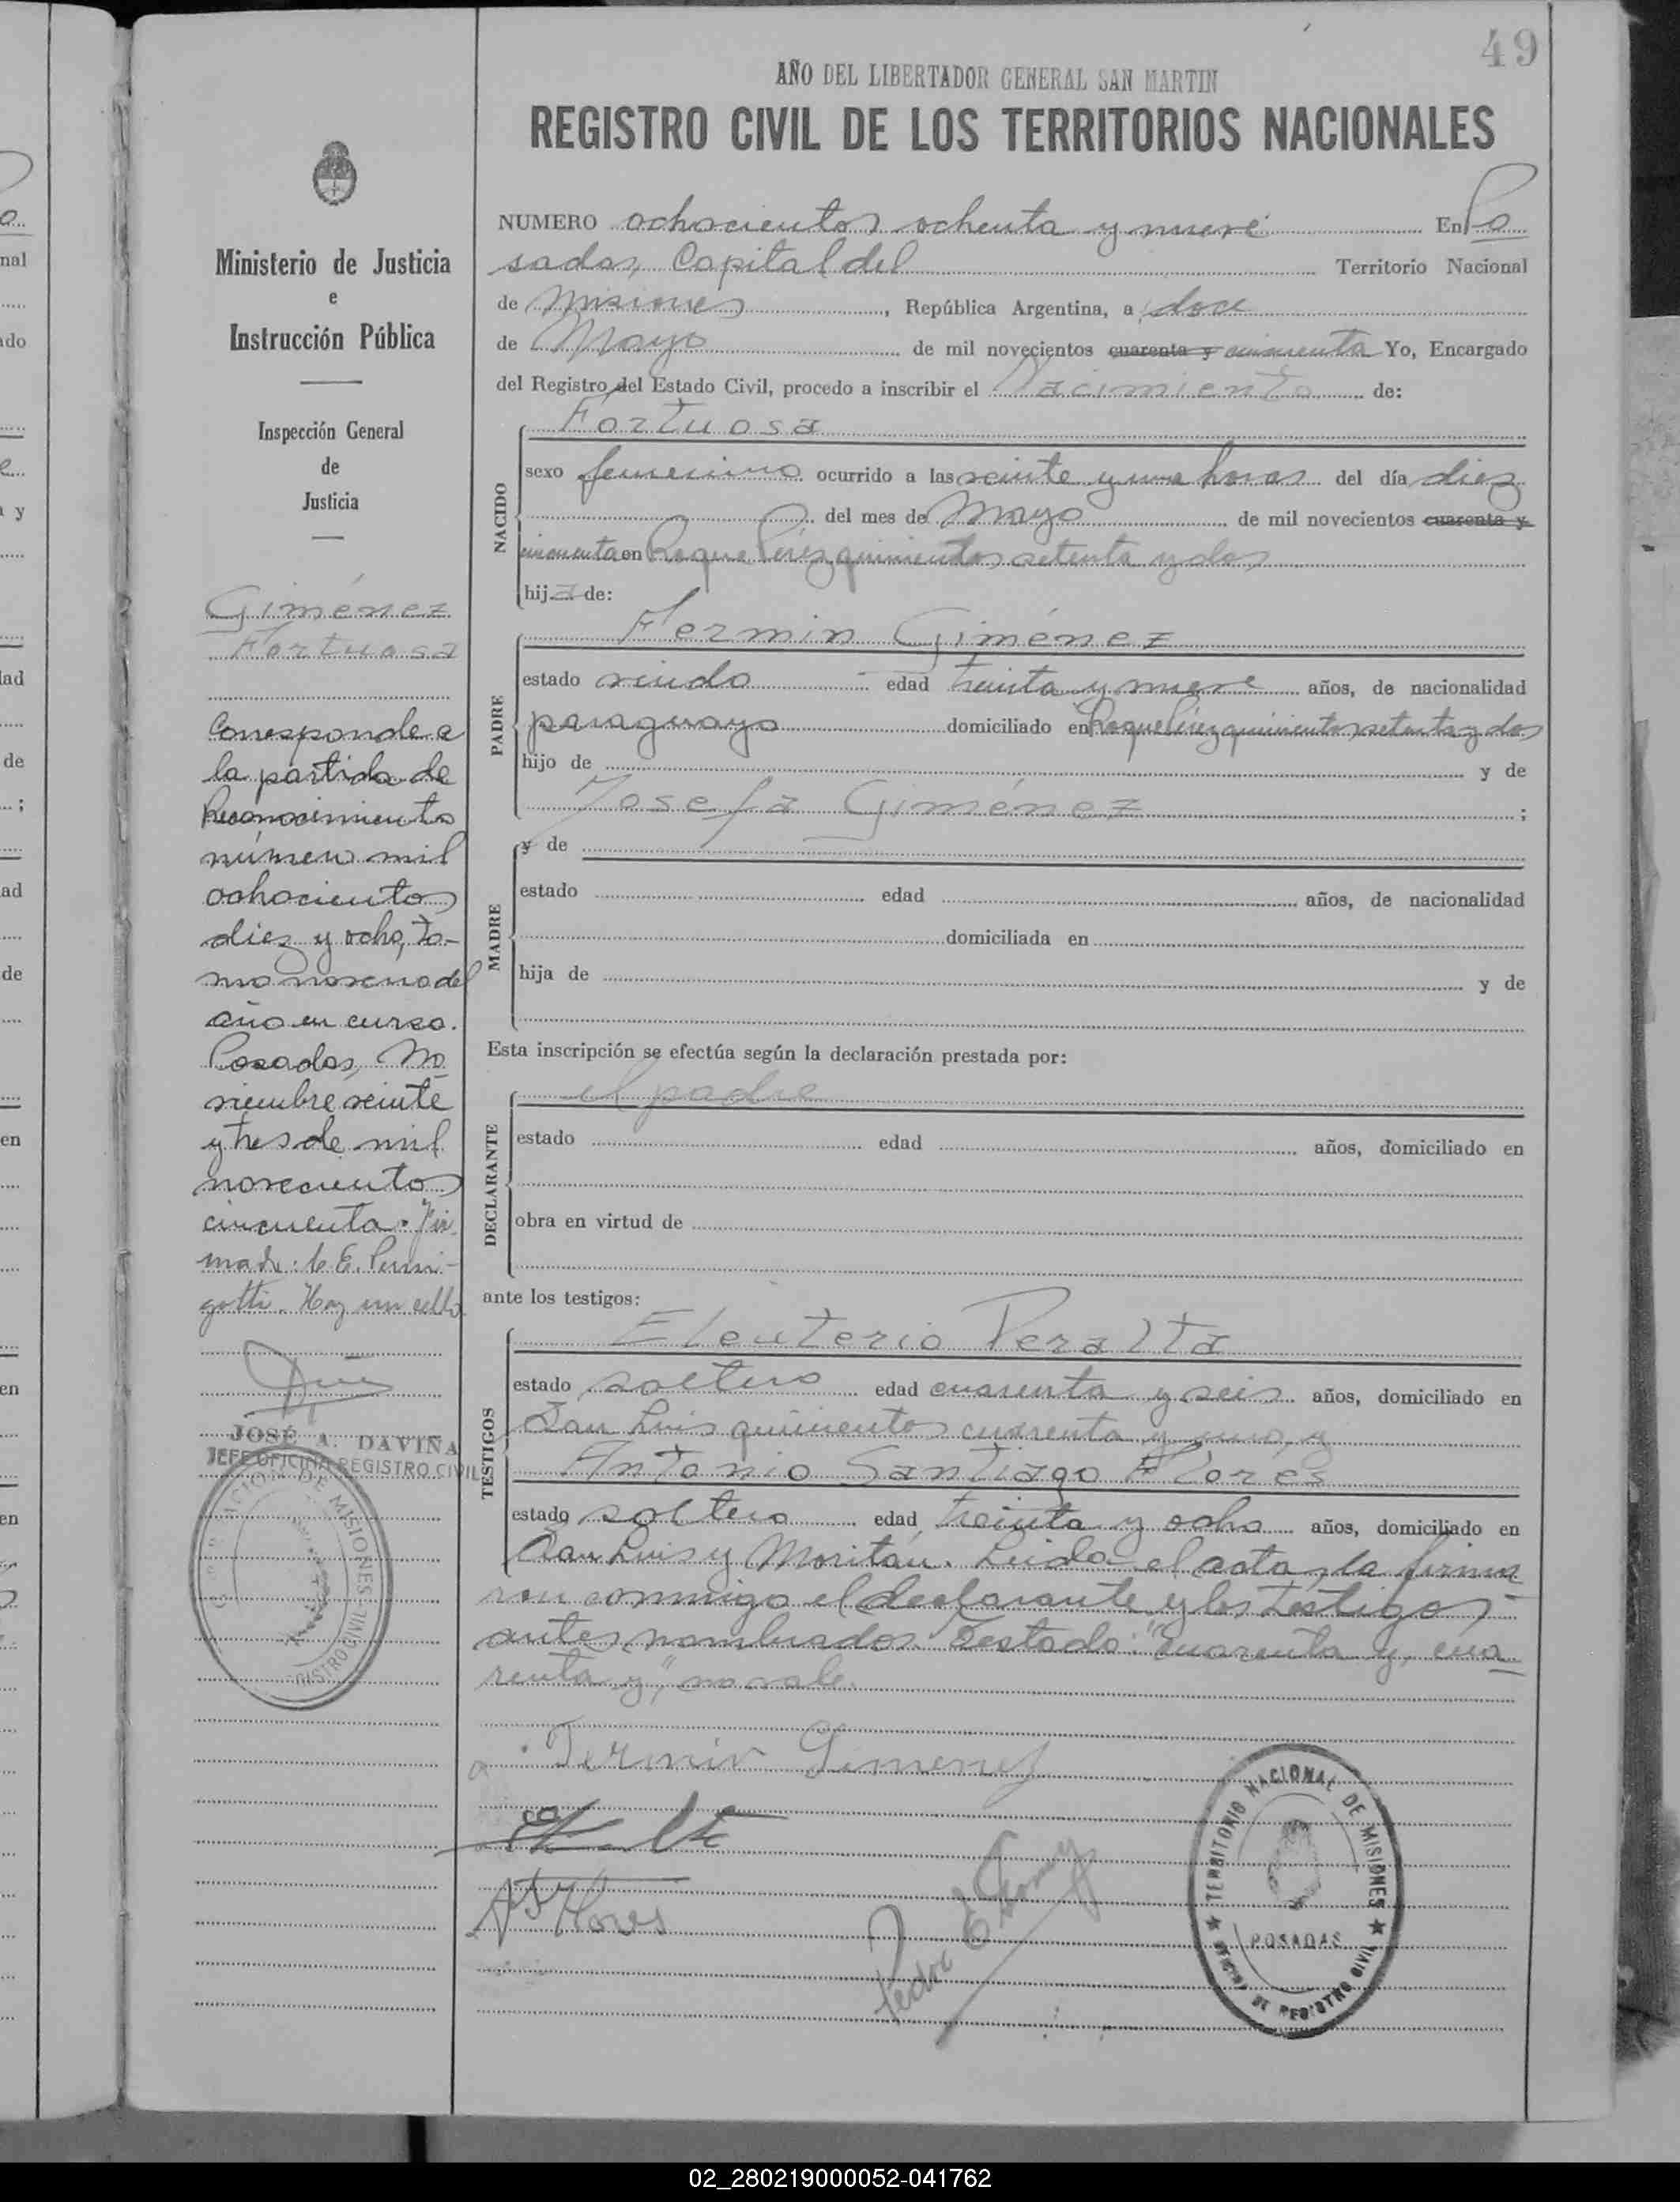 49
AÑO DEL LIBERTADOR GENERAL SAN MARTIN
REGISTRO CIVIL DE LOS TERRITORIOS NACIONALES
Ministerio de Justicia
e
Instrucción Pública
Inspección General
de
Justicia
Giménez
Fortuosa
Corresponde a
la partida de
Reconocimiento
número mil
ochocientos
diez y ocho, to-
mo noveno del
año en curso.
Posadas, No
viembre veinte
y tres de mil
novecientos
cincuenta. Fir
mado:
Hay un sello
JOSÉ A. DAVIÑA
JEFE OFICINA REGISTRO CIVIL
NUMERO ochocientos ochenta y nueve En Po
sadas, Capital del Territorio Nacional
de Misiones, República Argentina, a doce
de Mayo de mil novecientos cuarenta y cincuenta Yo, Encargado
del Registro del Estado Civil, procedo a inscribir el Nacimiento de:
NACIDO
Fortuosa
sexo femenino ocurrido a las veinte y una horas del día diez
del mes de Mayo de mil novecientos cuarenta y
cincuenta en Roque Pérez quinientos setenta y dos
hija de:
PADRE
Fermin Giménez
estado viudo edad treinta y nueve años, de nacionalidad
paraguayo domiciliado en Roque Pérez quinientos setenta y dos
hijo de y de
Josefa Giménez ;
MADRE
y de
estado edad años, de nacionalidad
domiciliada en
hija de y de
Esta inscripción se efectúa según la declaración prestada por:
DECLARANTE
el padre
estado edad años, domiciliado en
obra en virtud de
ante los testigos:
TESTIGOS
Eleuterio Peralta
estado soltero edad cuarenta y seis años, domiciliado en
San Luis quinientos cuarenta y uno, y
Antonio Santiago Flores
estado soltero edad treinta y ocho años, domiciliado en
San Luis y Moritán. Leida el acta, la firma
ron conmigo el declarante y los testigos
antes nombrados. Testado: "cuarenta y, cua
renta y", no vale.
Fermin Gimenez
Flores
Pedro E
TERRITORIO NACIONAL DE MISIONES
POSADAS
DE REGISTRO CIVIL
02_280219000052-041762